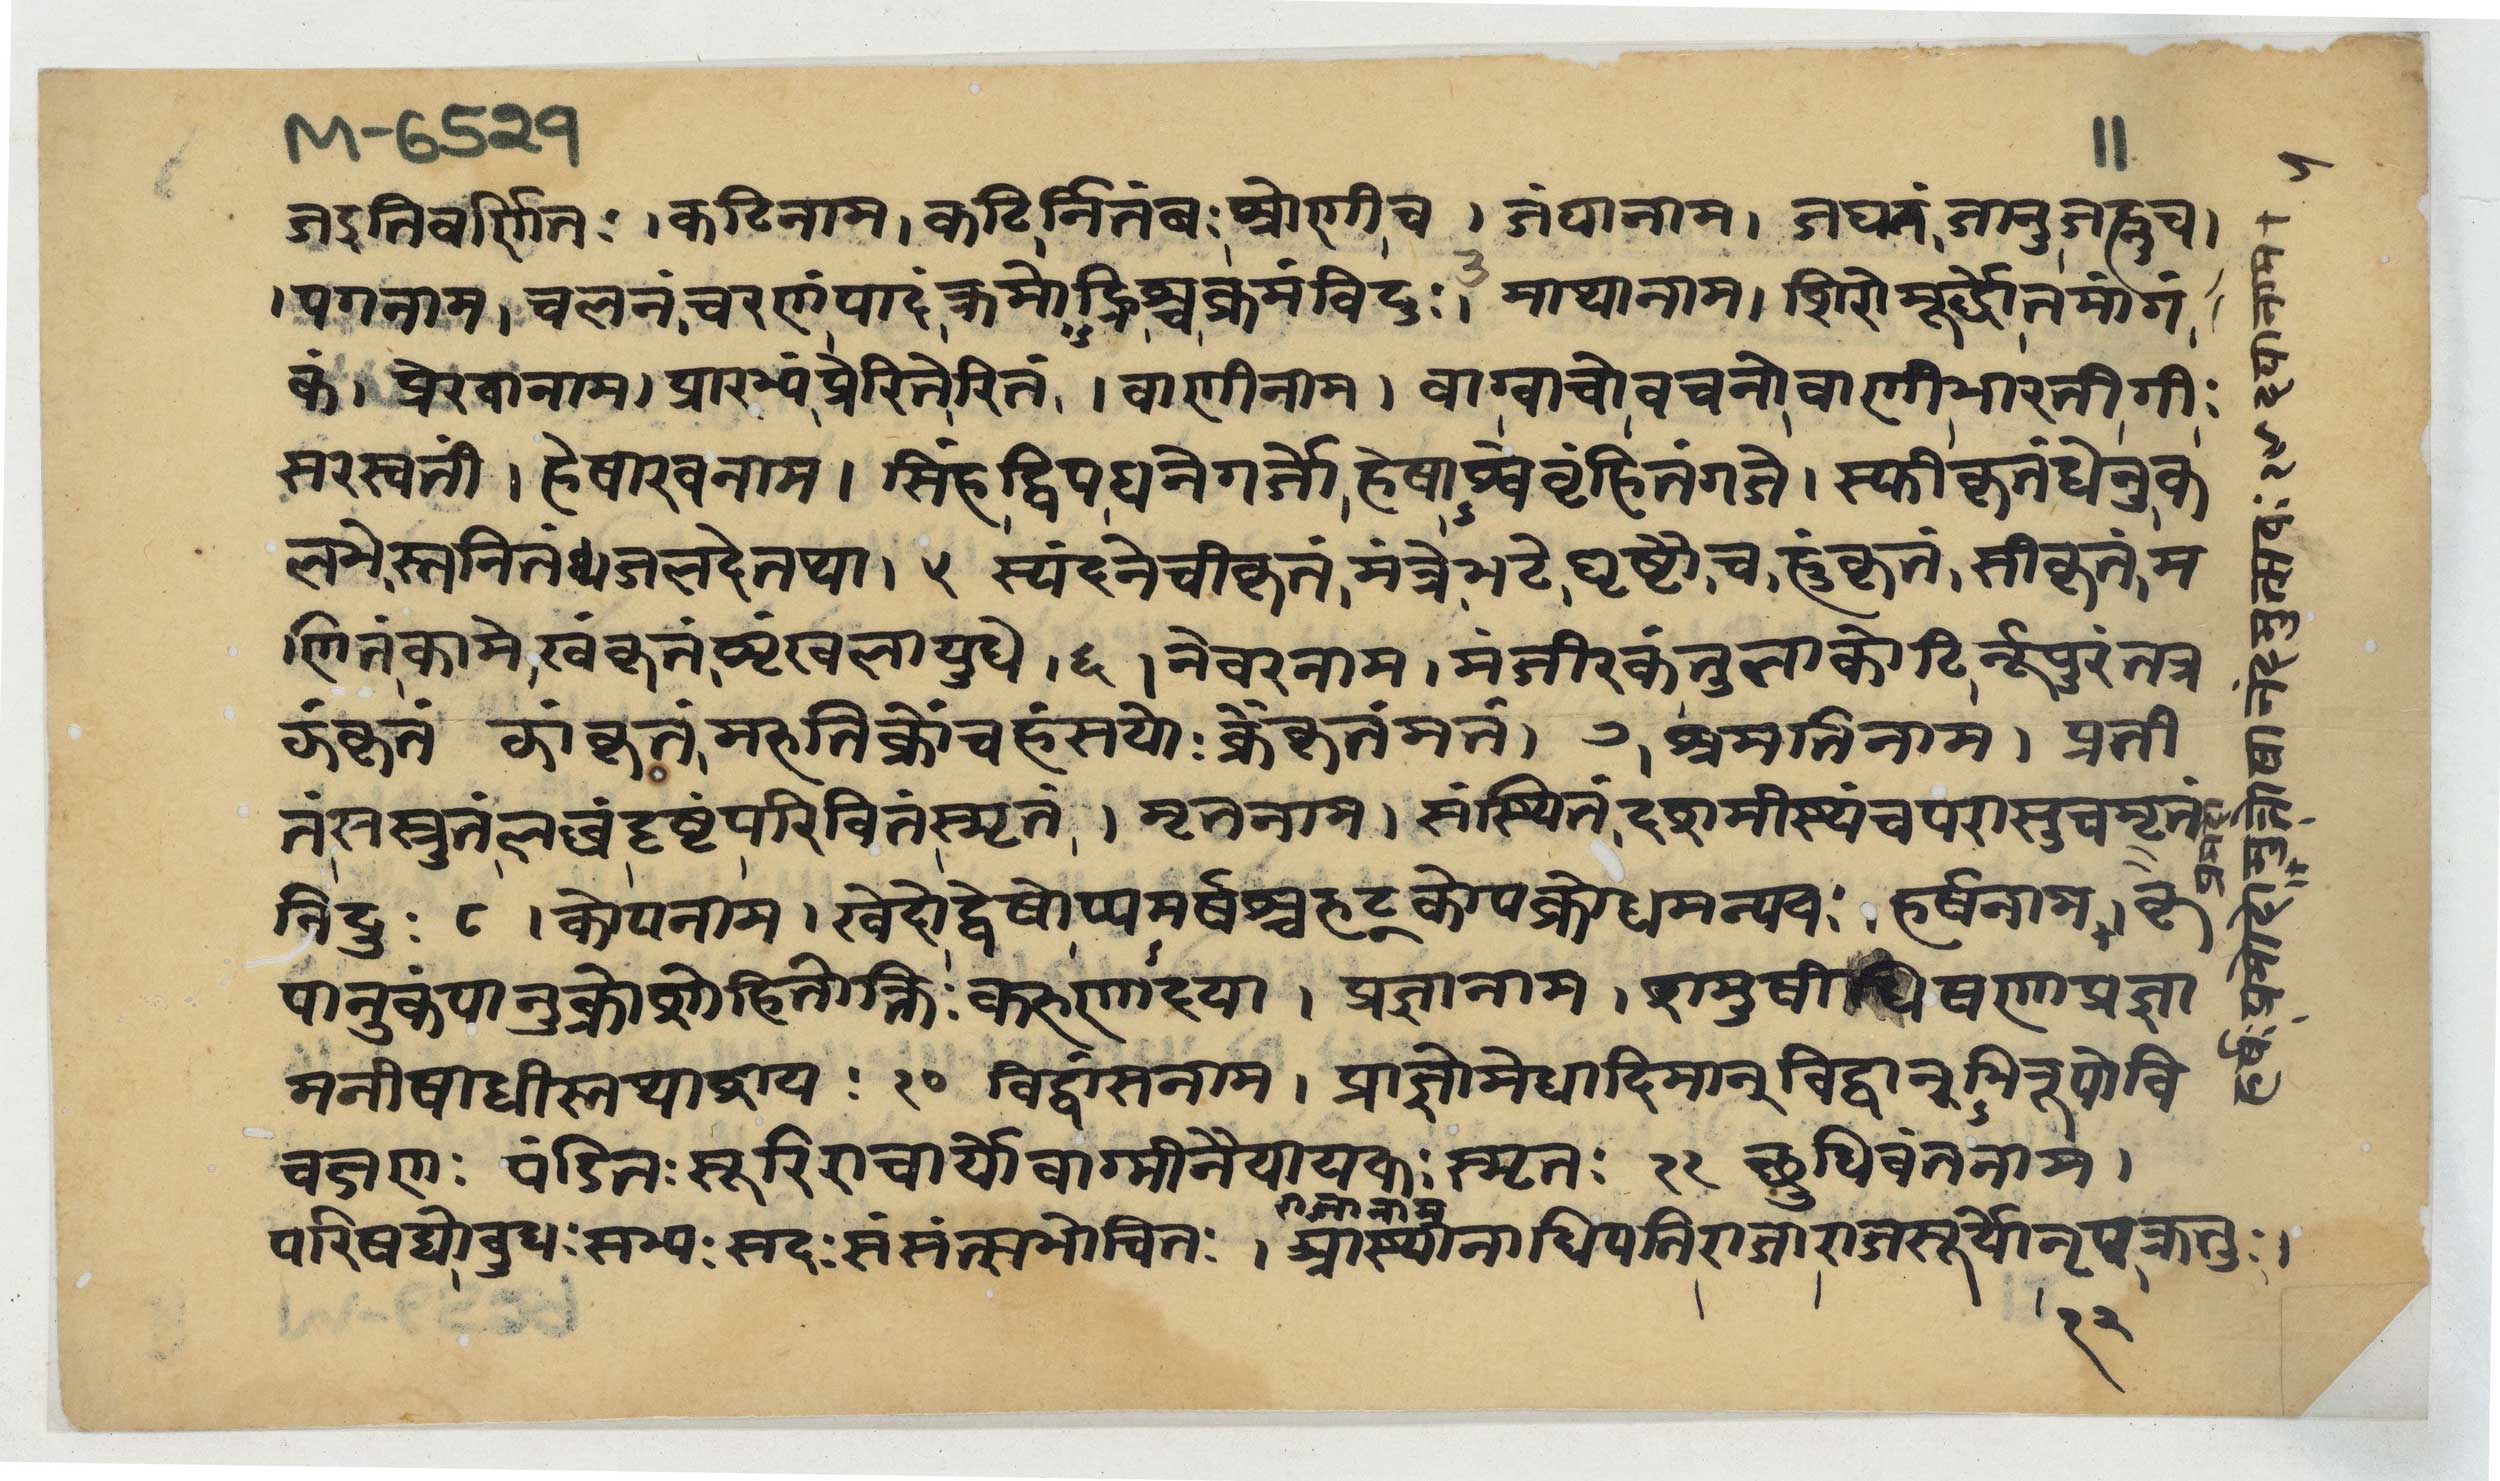 M-6529
11
५
जड़तिवर्णितः । कटिनाम । कटिर्नितंबः श्रोणीच । जंघानाम । जघनं जानुजह्नुच ।
। पगनाम । चलनं चरणं पादं क्रमोंऽह्रिश्च क्रमं विदुः । माथानाम । शिरोमूर्द्धोतमांगं
कं । प्रेरवानाम । प्रारभ्यं प्रेरितेरितं । वाणीनाम । वाग्वाचो वचनो वाणी भारती गीः
सरस्वती । हेषारवनाम । सिंहद्विपघनेगर्जो हेषाऽश्वे वृंहितं गजे । स्फीकृतं धेनुक
लभे स्तनितं जलदे तथा । ५ स्यंदने चीकृतं मंत्रे भटे घृष्टौ च हुंकृतं सीकृतं म
णितं कामे खंकृतं शृंखलायुधे । ६ । नेवरनाम । मंजीरकं तुलाकोटिर्नूपुरं तत्र
ऊंकृतं ऊांकृतं मरुति क्रोंचहंसयोः क्रेंकृतं मतं । ७ । श्रमतिनाम । प्रती
तं सस्त्रुतं लब्धं दृष्टं परिचितं स्मृतं । मृतनाम । संस्थितं दशमीस्थं च परासु च मृतं
विदुः ८ । कोपनाम । खेदोद्वेषोप्यऽमर्षश्च रुट्कोपक्रोधमन्यवः । हर्षनाम । कृ
पानुकंपानुक्रोशो हितोक्तिः करुणा दया । प्रज्ञानाम । शमुषी धिषणा प्रज्ञा
मनीषा धीस्तथाशयः १० विद्वांसनाम । प्राज्ञो मेधादिमान् विद्वानऽभिरूपो वि
चक्षणः पंडितः सूरिराचार्यो वाग्मी नैयायकः स्मृतः ११ बुधिवंतनाम ।
परिषद्यो बुधः सभ्यः सदः संसत्सभोचितः । आस्थानाधिपतिराजा राजसूर्यो नृपक्रतुः ।
राजानाम
१२
हर्षः प्रमोदो मुत्तोषानंदमुत्सवः ९ दयानाम